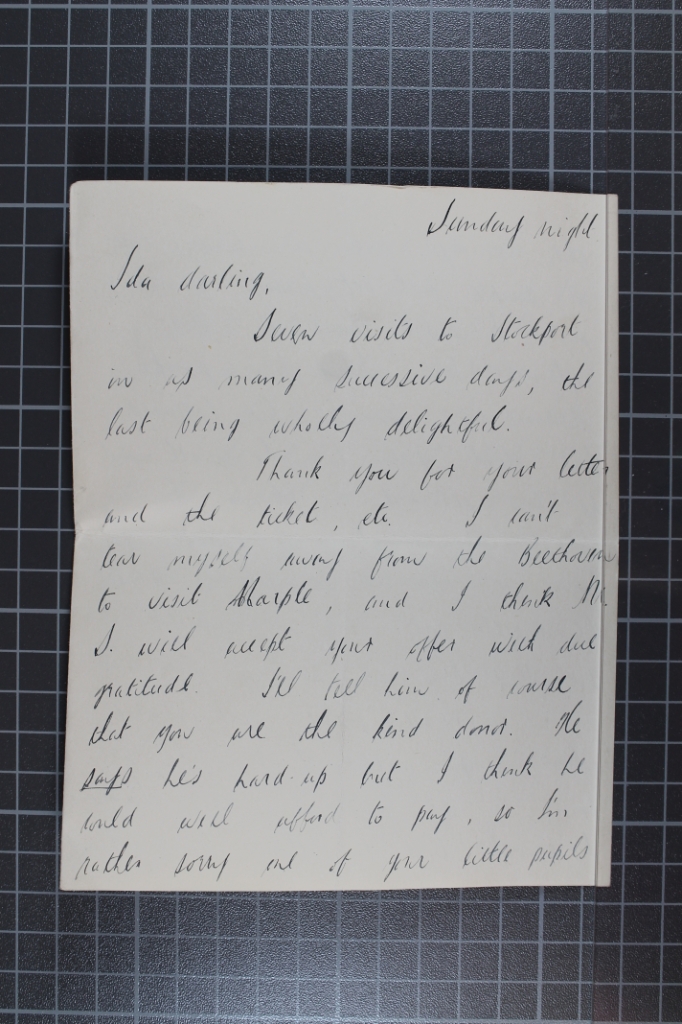 Sunday night
Ida darling,
Seven visits to Stockport
in as many successive days, the
last being wholly delightful.
Thank you for your letter
and the ticket, etc. I can't
tear myself away from the Beethoven
to visit Marple, and I think Mr.
S. will accept your offer with due
gratitude. I'll tell him of course
that you are the kind donor. He
says he's hard-up but I think he
could well afford to pay, so I'm
rather sorry one of your little pupils